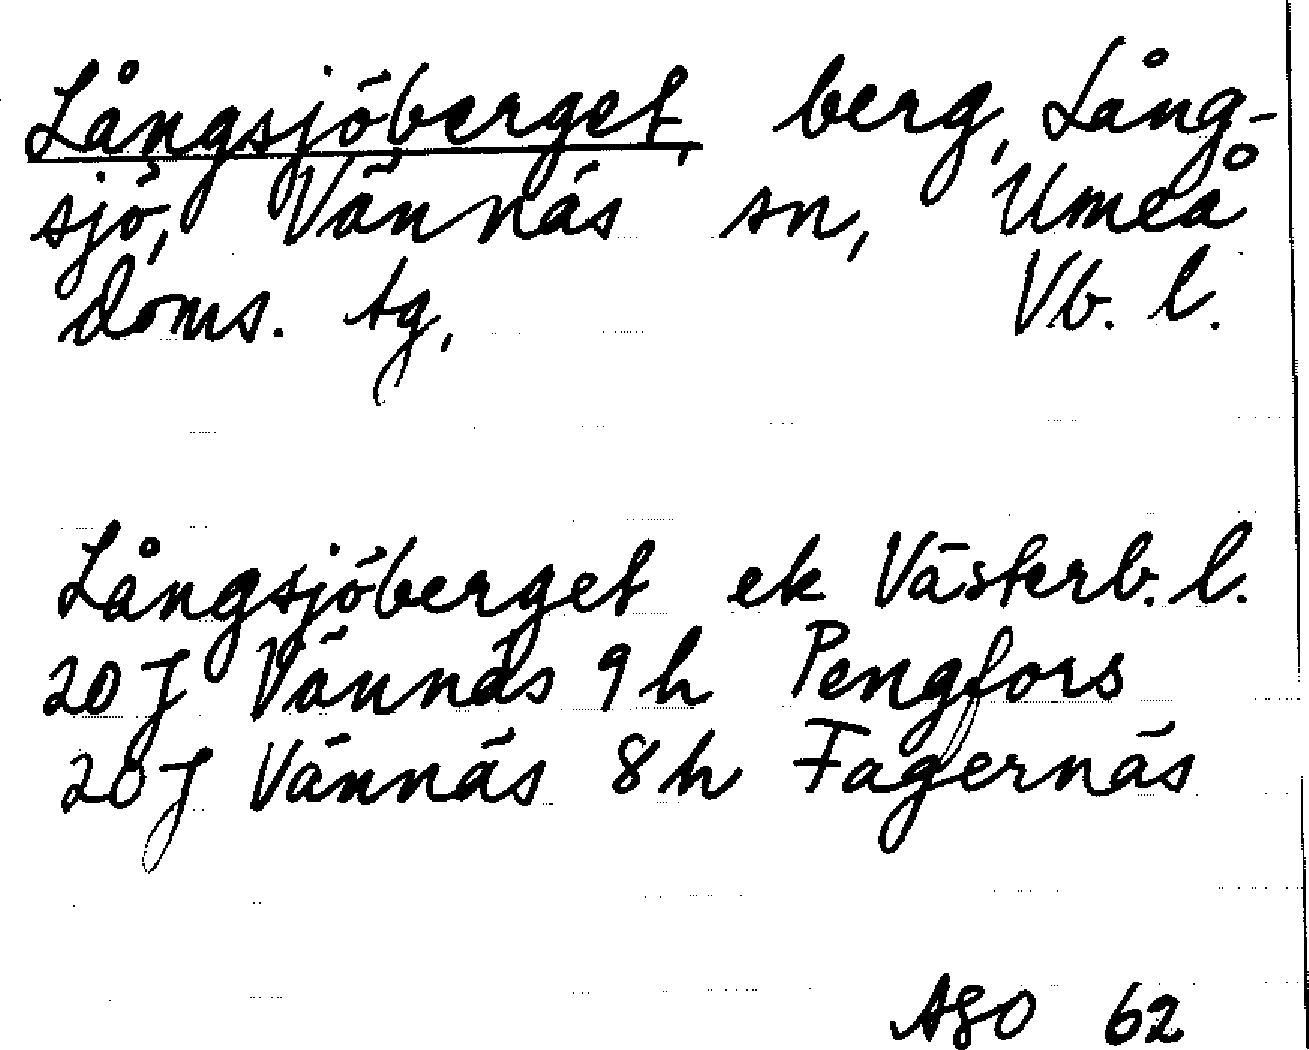 Långsjöberget, berg, Lång-
sjö, Vännäs sn, Umeå
doms. tg, Vb. l.
Långsjöberget ek Västerb. l.
20 J Vännäs 9 h Pengfors
20 J Vännäs 8 h Fagernäs
ASO 62